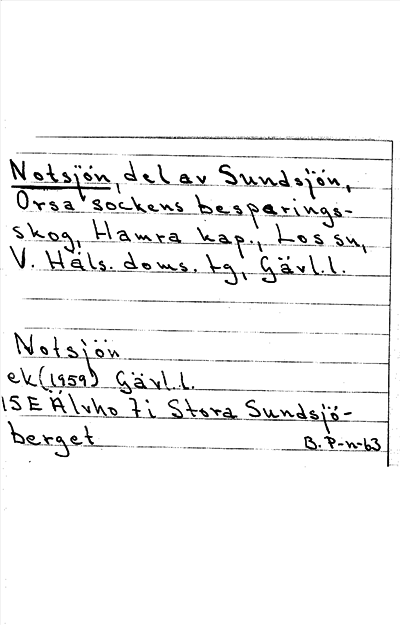 Notsjön, del av Sundsjön,
Orsa sockens besparings-
skog, Hamra kap., Los sn,
V. Häls. doms. tg, Gävl.l.
Notsjön
ek(1959) Gävl.l.
15E Älvho 7i Stora Sundsjö-
berget
B. P-n-63